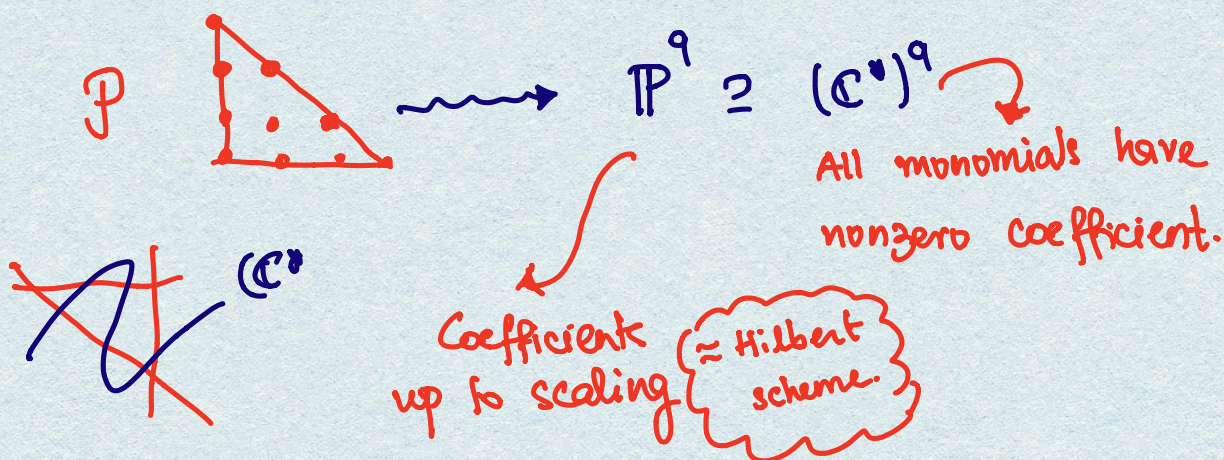 P
ℙ⁹ ⊇ (ℂ*)⁹
All monomials have
nonzero coefficient.
(ℂ*
Coefficient
up to scaling
≈ Hilbert
scheme.